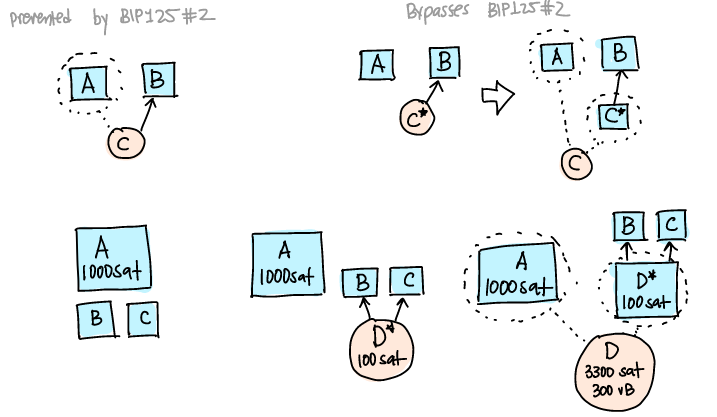 prevented by BIP125#2
Bypasses BIP125#2
A
B
C
A
B
C*
A
B
C*
C
A
1000sat
B
C
A
1000sat
B
C
D*
100 sat
A
1000sat
B
C
D*
100 sat
D
3300 sat
300 vB